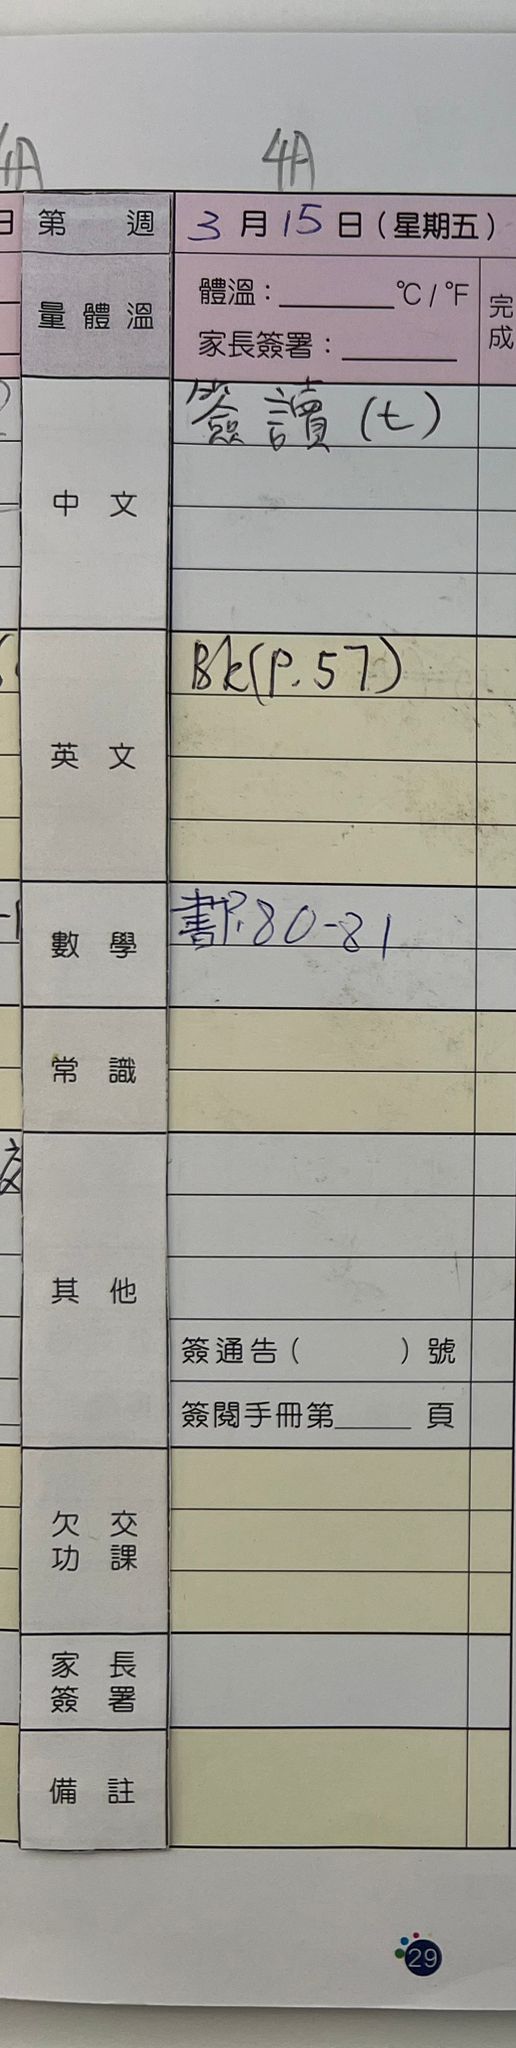 4A
4A
第 週
3月15日(星期五)
量體溫
體溫：________°C/°F
完成
家長簽署：________
中文
簽讀(t)
英文
Bk(P.57)
數學
書P.80-81
常識
其他
簽通告( )號
簽閱手冊第_____頁
欠交
功課
家長
簽署
備註
29